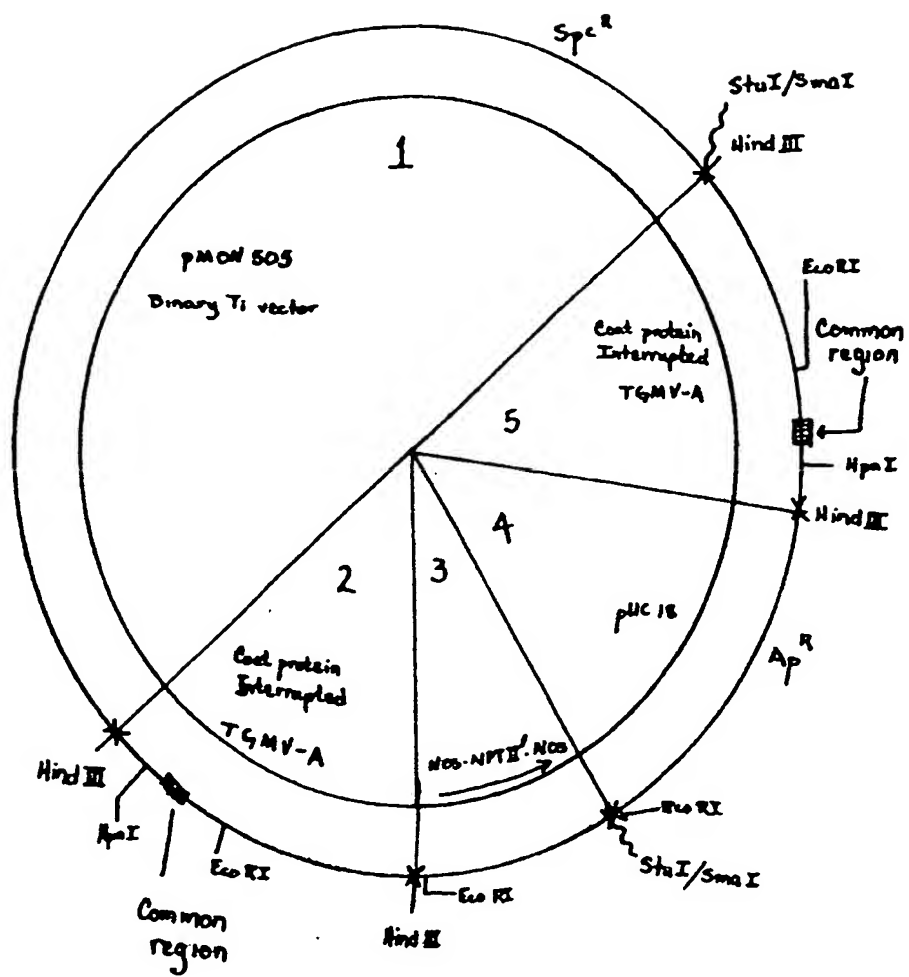 Spc^R
StuI/SmaI
Hind III
1
pMON 505
Binary Ti vector
EcoRI
Common
region
Coat protein
Interrupted
TGMV-A
5
HpaI
Hind III
4
3
2
pUC 18
Ap^R
Coat protein
Interrupted
TGMV-A
NOS-NPT II'-NOS
Hind III
HpaI
EcoRI
Common
region
EcoRI
StuI/SmaI
EcoRI
Hind III